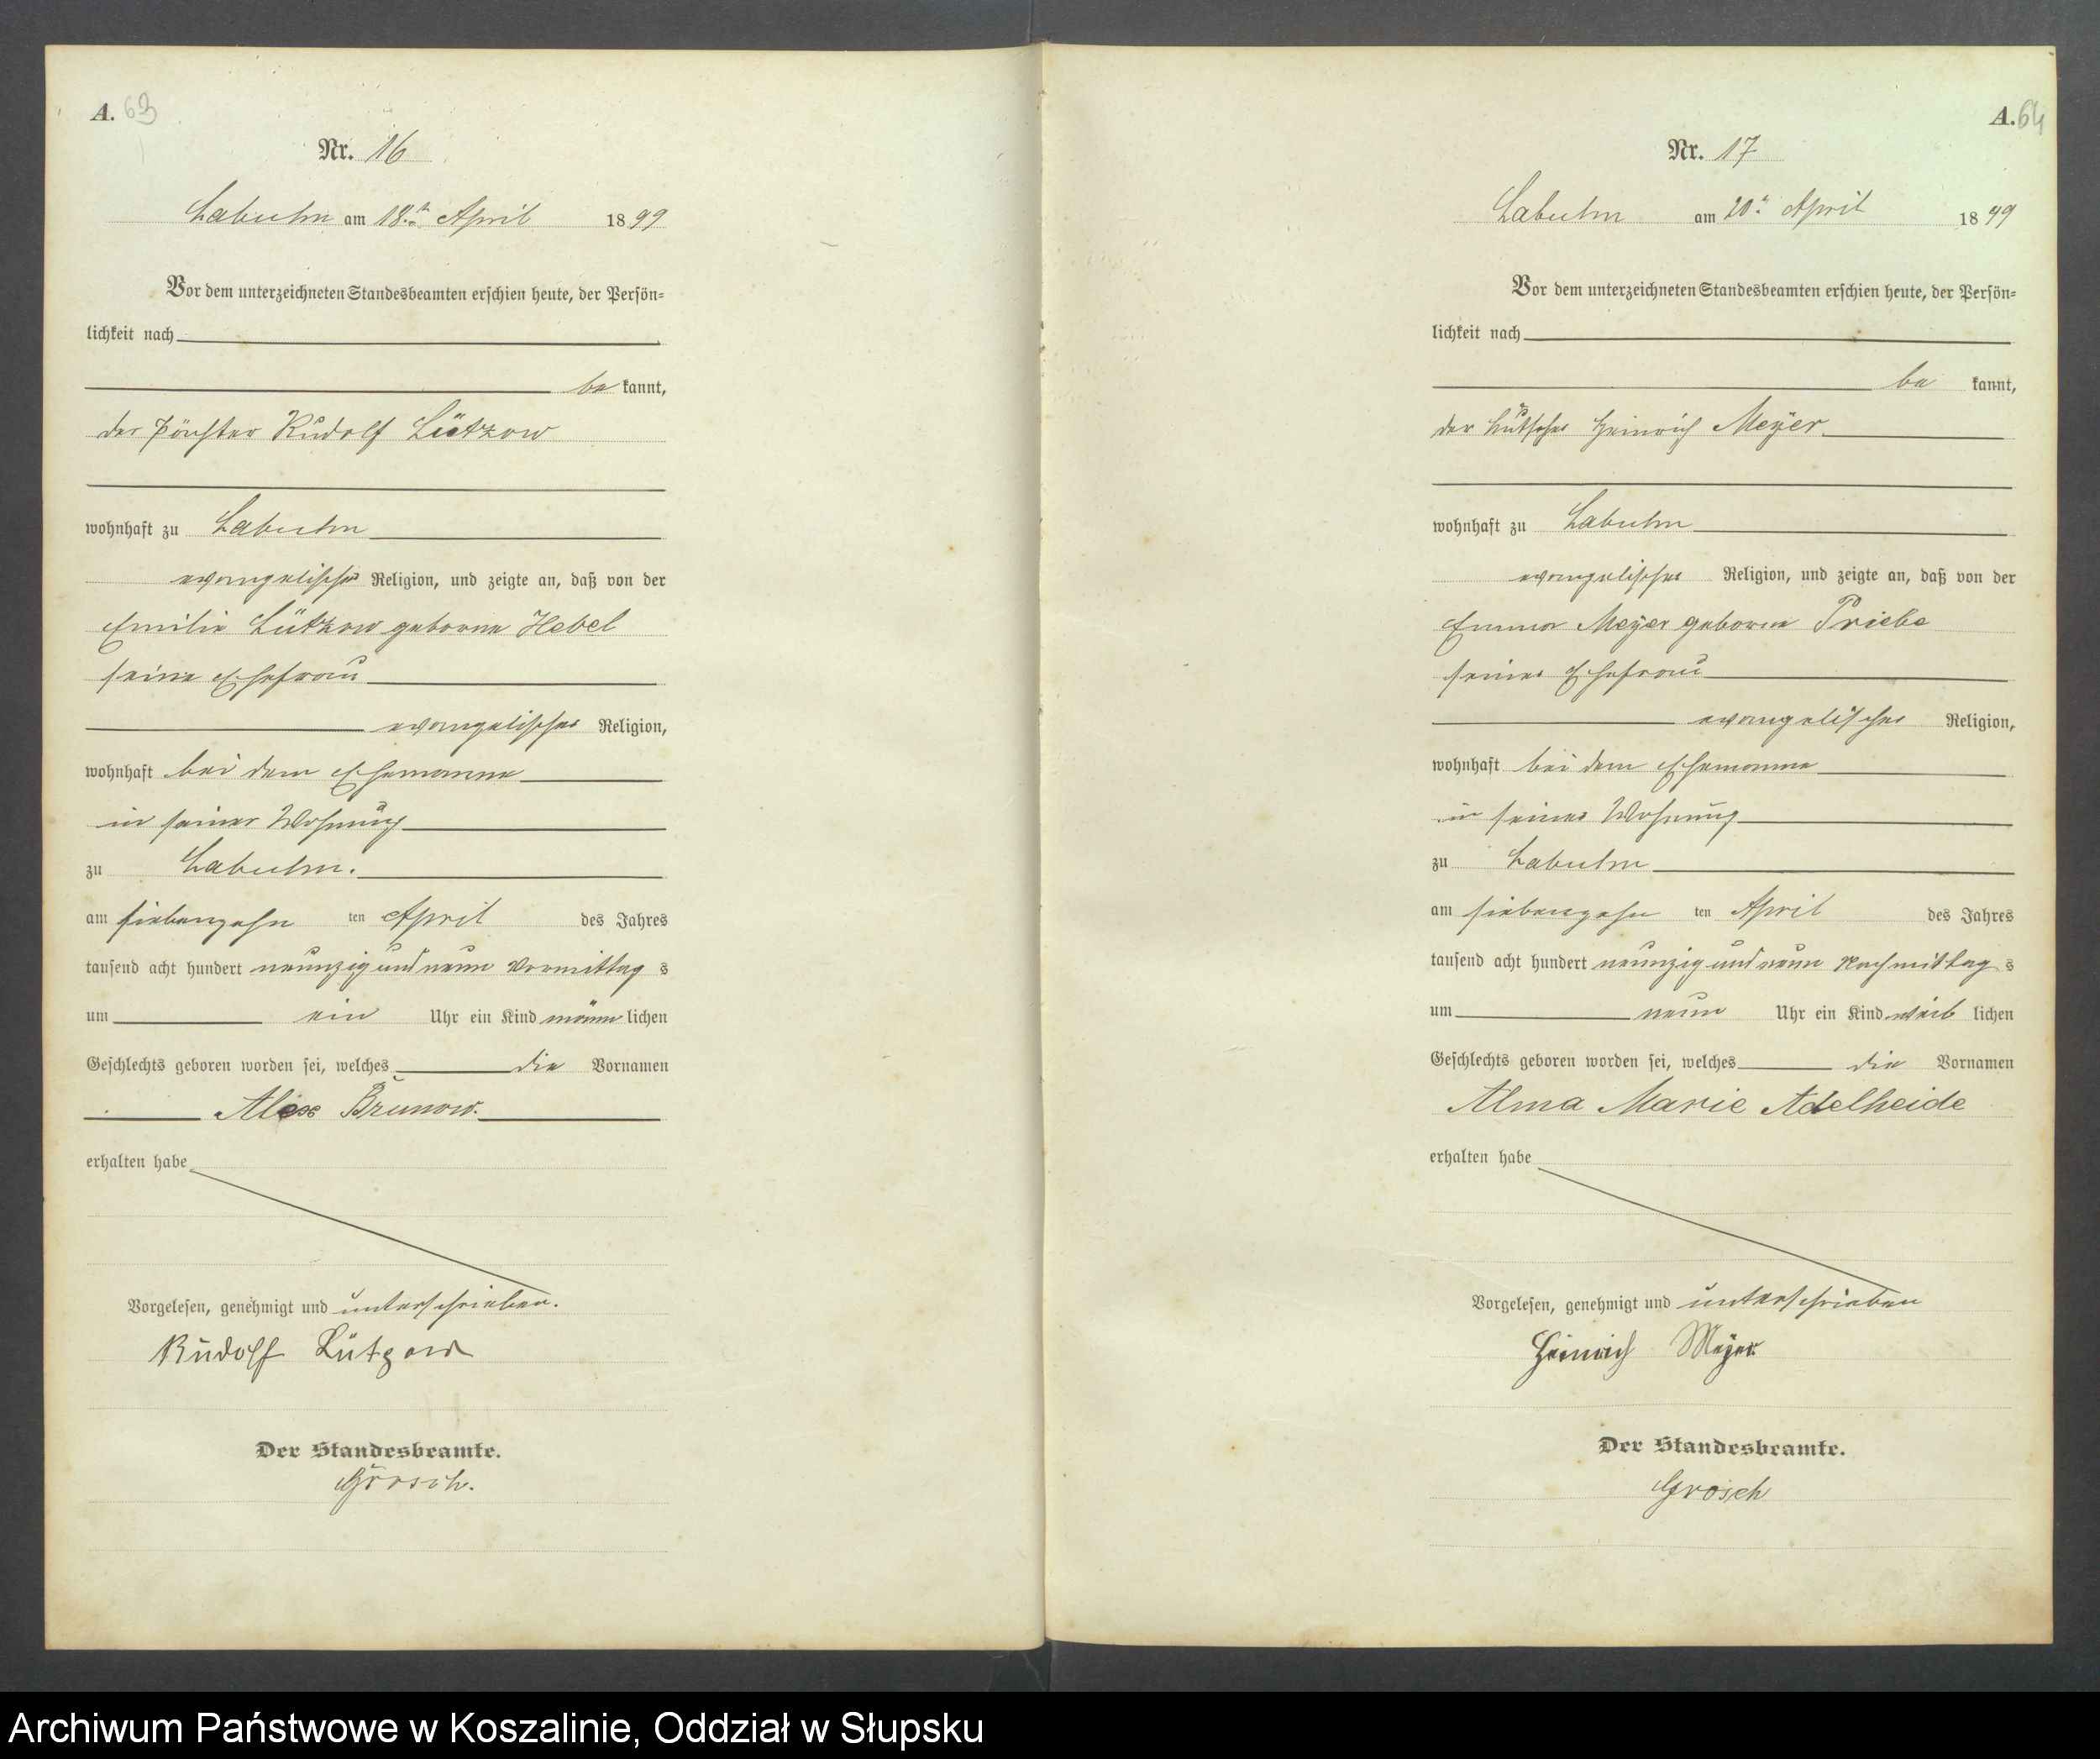 A. 63
Nr. 16
Labuhn am 18.ten April 1899
Vor dem unterzeichneten Standesbeamten erschien heute, der Persön-
lichkeit nach
be kannt,
der Förster Rudolf Lützow
wohnhaft zu Labuhn
evangelischer Religion, und zeigte an, daß von der
Emilie Lützow geborne Hebel
seine Ehefrau
evangelischer Religion,
wohnhaft bei dem Ehemanne
in seiner Wohnung
zu Labuhn.
am siebenzehn ten April des Jahres
tausend acht hundert neunzig und neun Vormittag s
um ein Uhr ein Kind männ lichen
Geschlechts geboren worden sei, welches die Vornamen
Alex
erhalten habe
Vorgelesen, genehmigt und unterschrieben.
Rudolf Lützow
Der Standesbeamte.
Grosch.
A. 64
Nr. 17
Labuhn am 20.n April 1899
Vor dem unterzeichneten Standesbeamten erschien heute, der Persön-
lichkeit nach
be kannt,
der Heinrich Meÿer
wohnhaft zu Labuhn
evangelischer Religion, und zeigte an, daß von der
Emma Meÿer geborne Priebe
seiner Ehefrau
evangelischer Religion,
wohnhaft bei dem Ehemanne
in seiner Wohnung
zu Labuhn
am siebenzehn ten April des Jahres
tausend acht hundert neunzig und neun Nachmittag s
um neun Uhr ein Kind weib lichen
Geschlechts geboren worden sei, welches die Vornamen
Alma Marie Adelheide
erhalten habe
Vorgelesen, genehmigt und unterschrieben
Heinrich Meÿer
Der Standesbeamte.
Grosch
Archiwum Państwowe w Koszalinie, Oddział w Słupsku